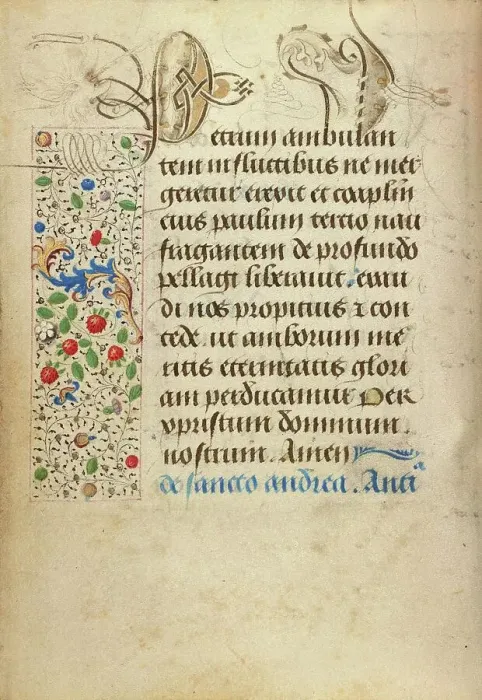 Petrum ambulan
tem in fluctibus ne mer
geretur erexit et coaplm̄
eius paulum tercio nau
fragantem de profundo
pellagi liberauit. exau
di nos propitius ⁊ con
cede. ut amborum me
ritis eternitatis glori
am perducamur Per
xpristum dominum.
nostrum. Amen
de sancto andrea. Antiᵃ